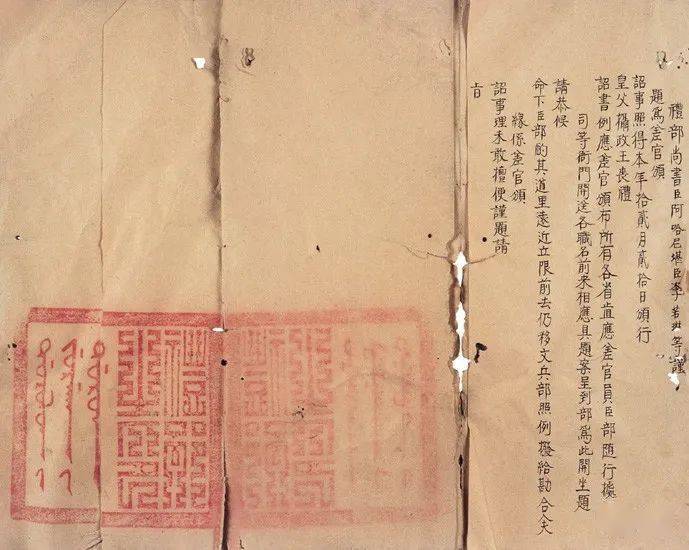 禮部尚書臣阿哈尼堪臣李若琳等謹
題爲差官頒
詔事照得本年拾貳月貳拾日頒行
皇父攝政王喪禮
詔書例應差官頒布所有各省直應差官員臣部隨行據
司等衙門開送各職名前來相應具題案呈到部爲此開坐題
請恭候
命下臣部酌其道里遠近立限前去仍移文兵部照例撥給勘合夫
緣係差官頒
詔事理未敢擅便謹題請
旨